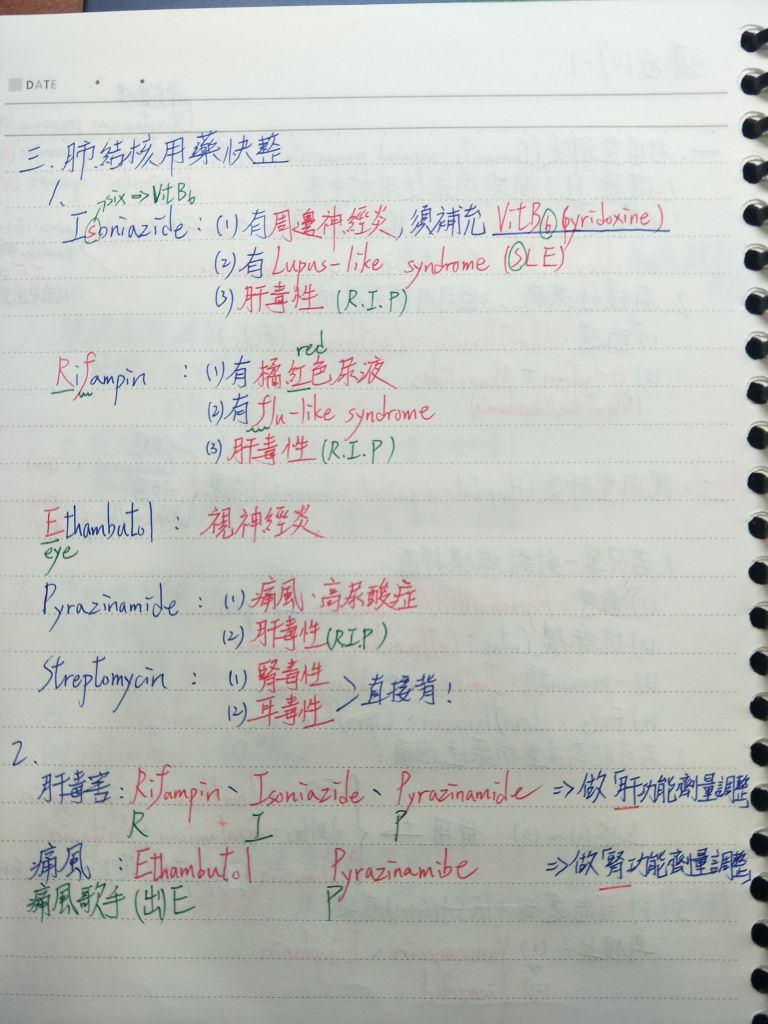 DATE
三.肺結核用藥快整
1.
six => VitB6
Isoniazide: (1)有周邊神經炎,須補充 VitB6(pyridoxine)
(2)有Lupus-like syndrome (SLE)
(3)肝毒性 (R.I.P)
red
Rifampin : (1)有橘紅色尿液
(2)有flu-like syndrome
(3)肝毒性 (R.I.P)
Ethambutol : 視神經炎
eye
Pyrazinamide : (1)痛風、高尿酸症
(2)肝毒性(RIP)
Streptomycin : (1)腎毒性
(2)耳毒性 >直接背!
2.
肝毒害:Rifampin、Isoniazide、Pyrazinamide =>做「肝功能劑量調整
R + I P
痛風 :Ethambutol Pyrazinambe =>做「腎功能劑量調整
痛風歌手(出)E P